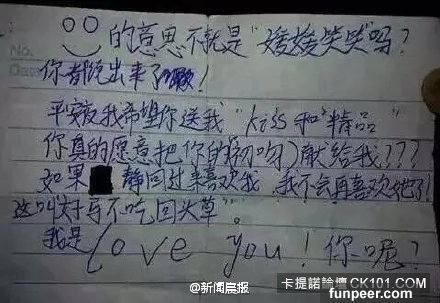 的意思不就是"嫒嫒笑笑"吗?
你都说出来了!
平安夜我希望你送我"kiss和"精品"
你真的愿意把你的初吻)献给我???
如果静回过来喜欢我,我不会再喜欢她了!
这叫好马不吃回头草"。
我是Love you!你呢?
@新闻晨报
卡提諾論壇 CK101.COM
funpeer.com